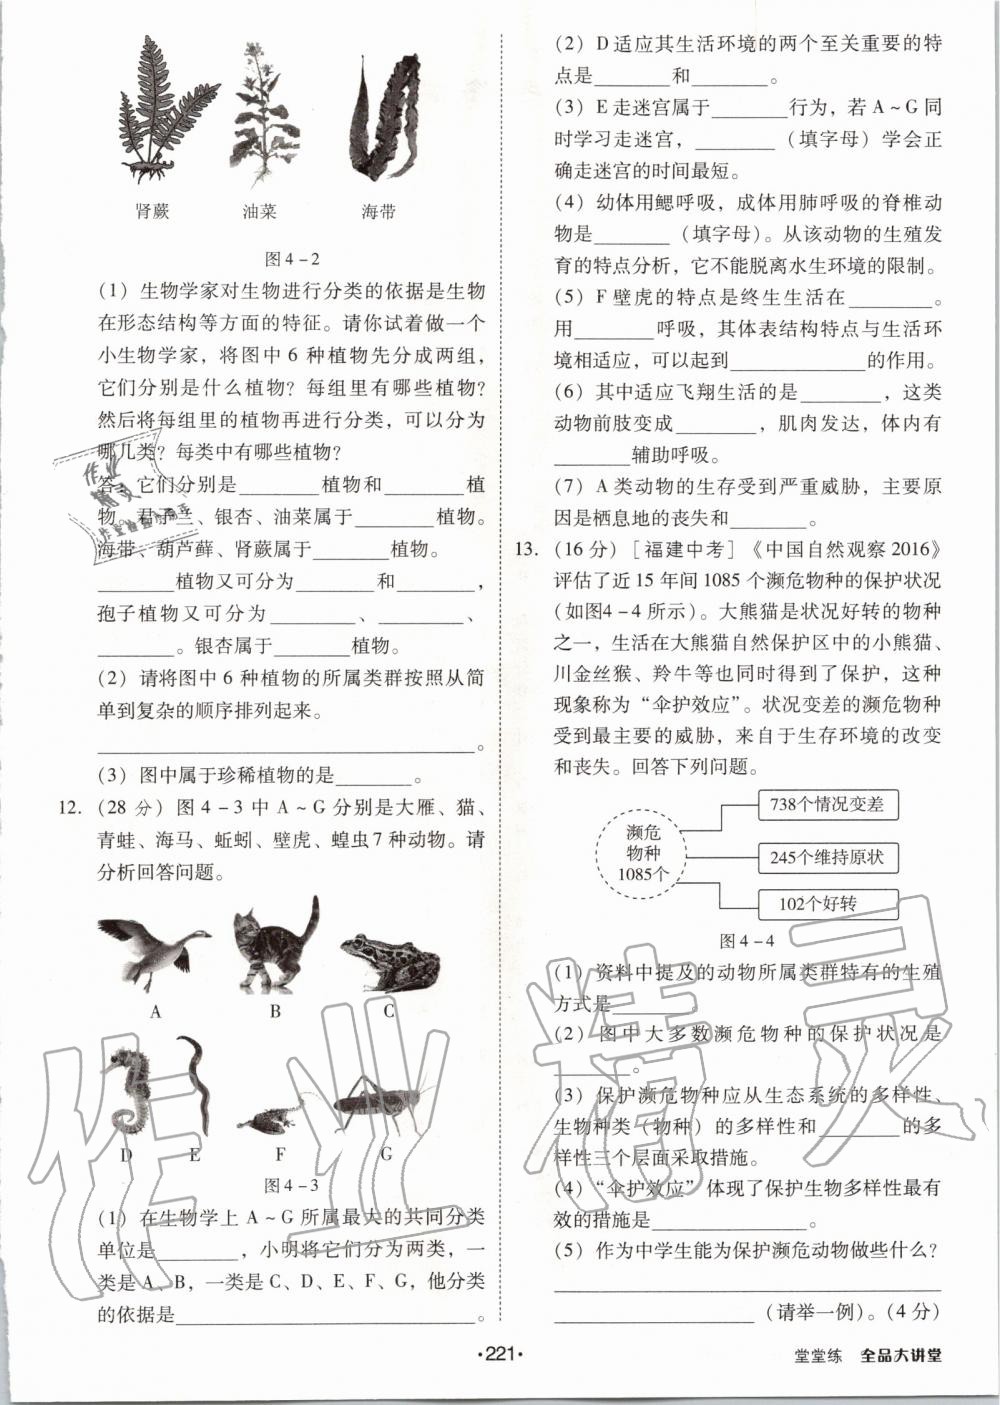 肾蕨 油菜 海带
图4-2
(1) 生物学家对生物进行分类的依据是生物
在形态结构等方面的特征。请你试着做一个
小生物学家，将图中6种植物先分成两组，
它们分别是什么植物？每组里有哪些植物？
然后将每组里的植物再进行分类，可以分为
哪几类？每类中有哪些植物？
答：它们分别是________植物和________植
物。君子兰、银杏、油菜属于________植物。
海带、葫芦藓、肾蕨属于________植物。
________植物又可分为________和________，
孢子植物又可分为________、________、
________。银杏属于________植物。
(2) 请将图中6种植物的所属类群按照从简
单到复杂的顺序排列起来。
________________________________________。
(3) 图中属于珍稀植物的是________。
12. (28分) 图4-3中A~G分别是大雁、猫、
青蛙、海马、蚯蚓、壁虎、蝗虫7种动物。请
分析回答问题。
A B C
D E F G
图4-3
(1) 在生物学上A~G所属最大的共同分类
单位是________，小明将它们分为两类，一
类是A、B，一类是C、D、E、F、G，他分类
的依据是________________________________。
(2) D适应其生活环境的两个至关重要的特
点是________和________。
(3) E走迷宫属于________行为，若A~G同
时学习走迷宫，________（填字母）学会正
确走迷宫的时间最短。
(4) 幼体用鳃呼吸，成体用肺呼吸的脊椎动
物是________（填字母）。从该动物的生殖发
育的特点分析，它不能脱离水生环境的限制。
(5) F壁虎的特点是终生生活在________。
用________呼吸，其体表结构特点与生活环
境相适应，可以起到______________的作用。
(6) 其中适应飞翔生活的是________，这类
动物前肢变成________，肌肉发达，体内有
________辅助呼吸。
(7) A类动物的生存受到严重威胁，主要原
因是栖息地的丧失和________。
13. (16分)［福建中考］《中国自然观察2016》
评估了近15年间1085个濒危物种的保护状况
（如图4-4所示）。大熊猫是状况好转的物种
之一，生活在大熊猫自然保护区中的小熊猫、
川金丝猴、羚牛等也同时得到了保护，这种
现象称为“伞护效应”。状况变差的濒危物种
受到最主要的威胁，来自于生存环境的改变
和丧失。回答下列问题。
濒危
物种
1085个
738个情况变差
245个维持原状
102个好转
图4-4
(1) 资料中提及的动物所属类群特有的生殖
方式是________。
(2) 图中大多数濒危物种的保护状况是
________。
(3) 保护濒危物种应从生态系统的多样性、
生物种类（物种）的多样性和________的多
样性三个层面采取措施。
(4) “伞护效应”体现了保护生物多样性最有
效的措施是________________。
(5) 作为中学生能为保护濒危动物做些什么？
________________________________________
____________________（请举一例）。(4分)
·221·
堂堂练 全品大讲堂
作业精灵